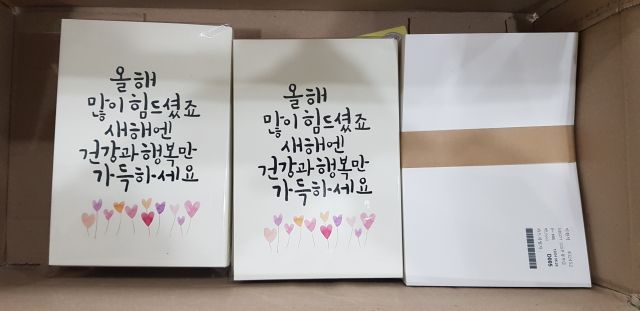 올해
많이 힘드셨죠
새해엔
건강과 행복만
가득하세요
올해
많이 힘드셨죠
새해엔
건강과 행복만
가득하세요